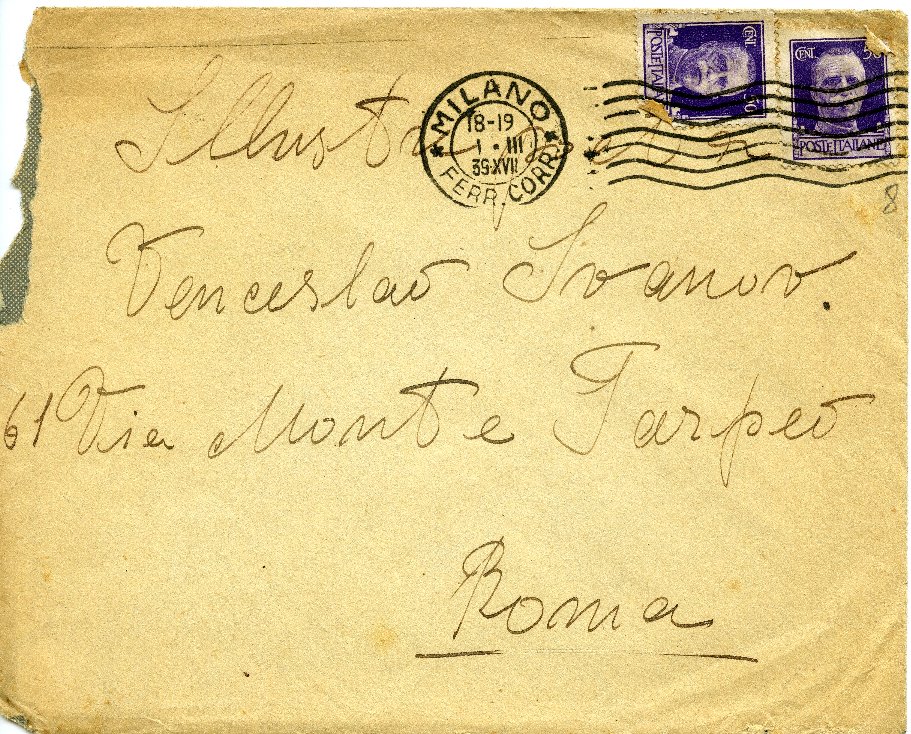 MILANO
18-19
1 · III
39·XVII
FERR. CORR.
CENT 50
POSTE ITALIANE
CENT 50
POSTE ITALIANE
8
Venceslao Ivanov.
61 Via Monte Tarpeo
Roma